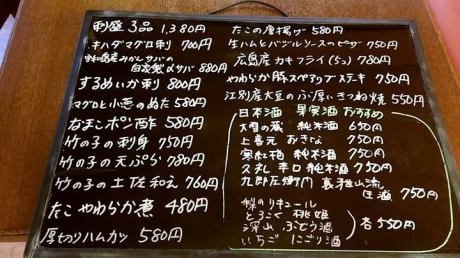 刺盛3品 1,380円
キハダマグロ刺 700円
みかんサバの
自家製〆サバ 880円
するめいか刺 800円
マグロと小葱のぬた 580円
なまこポン酢 580円
竹の子の刺身 750円
竹の子の天ぷら 780円
竹の子の土佐和え 760円
たこやわらか煮 480円
厚切りハムカツ 580円
たこの唐揚げ 580円
生ハムとバジルソースのピザ 750円
広島産カキフライ(5ヶ) 780円
やわらか豚スペアリブステーキ 750円
江別産大豆のぶ厚いきつね焼 550円
日本酒 果実酒 おすすめ
大雪の蔵 純米酒 650円
上喜元 おきな 750円
寒紅梅 純米酒 750円
久礼 辛口 純米酒 750円
九郎左衛門 裏雅山流
生酒 750円
梨のリキュール
とろこく 桃姫
深山 ぶどう酒
いちご にごり酒
各550円